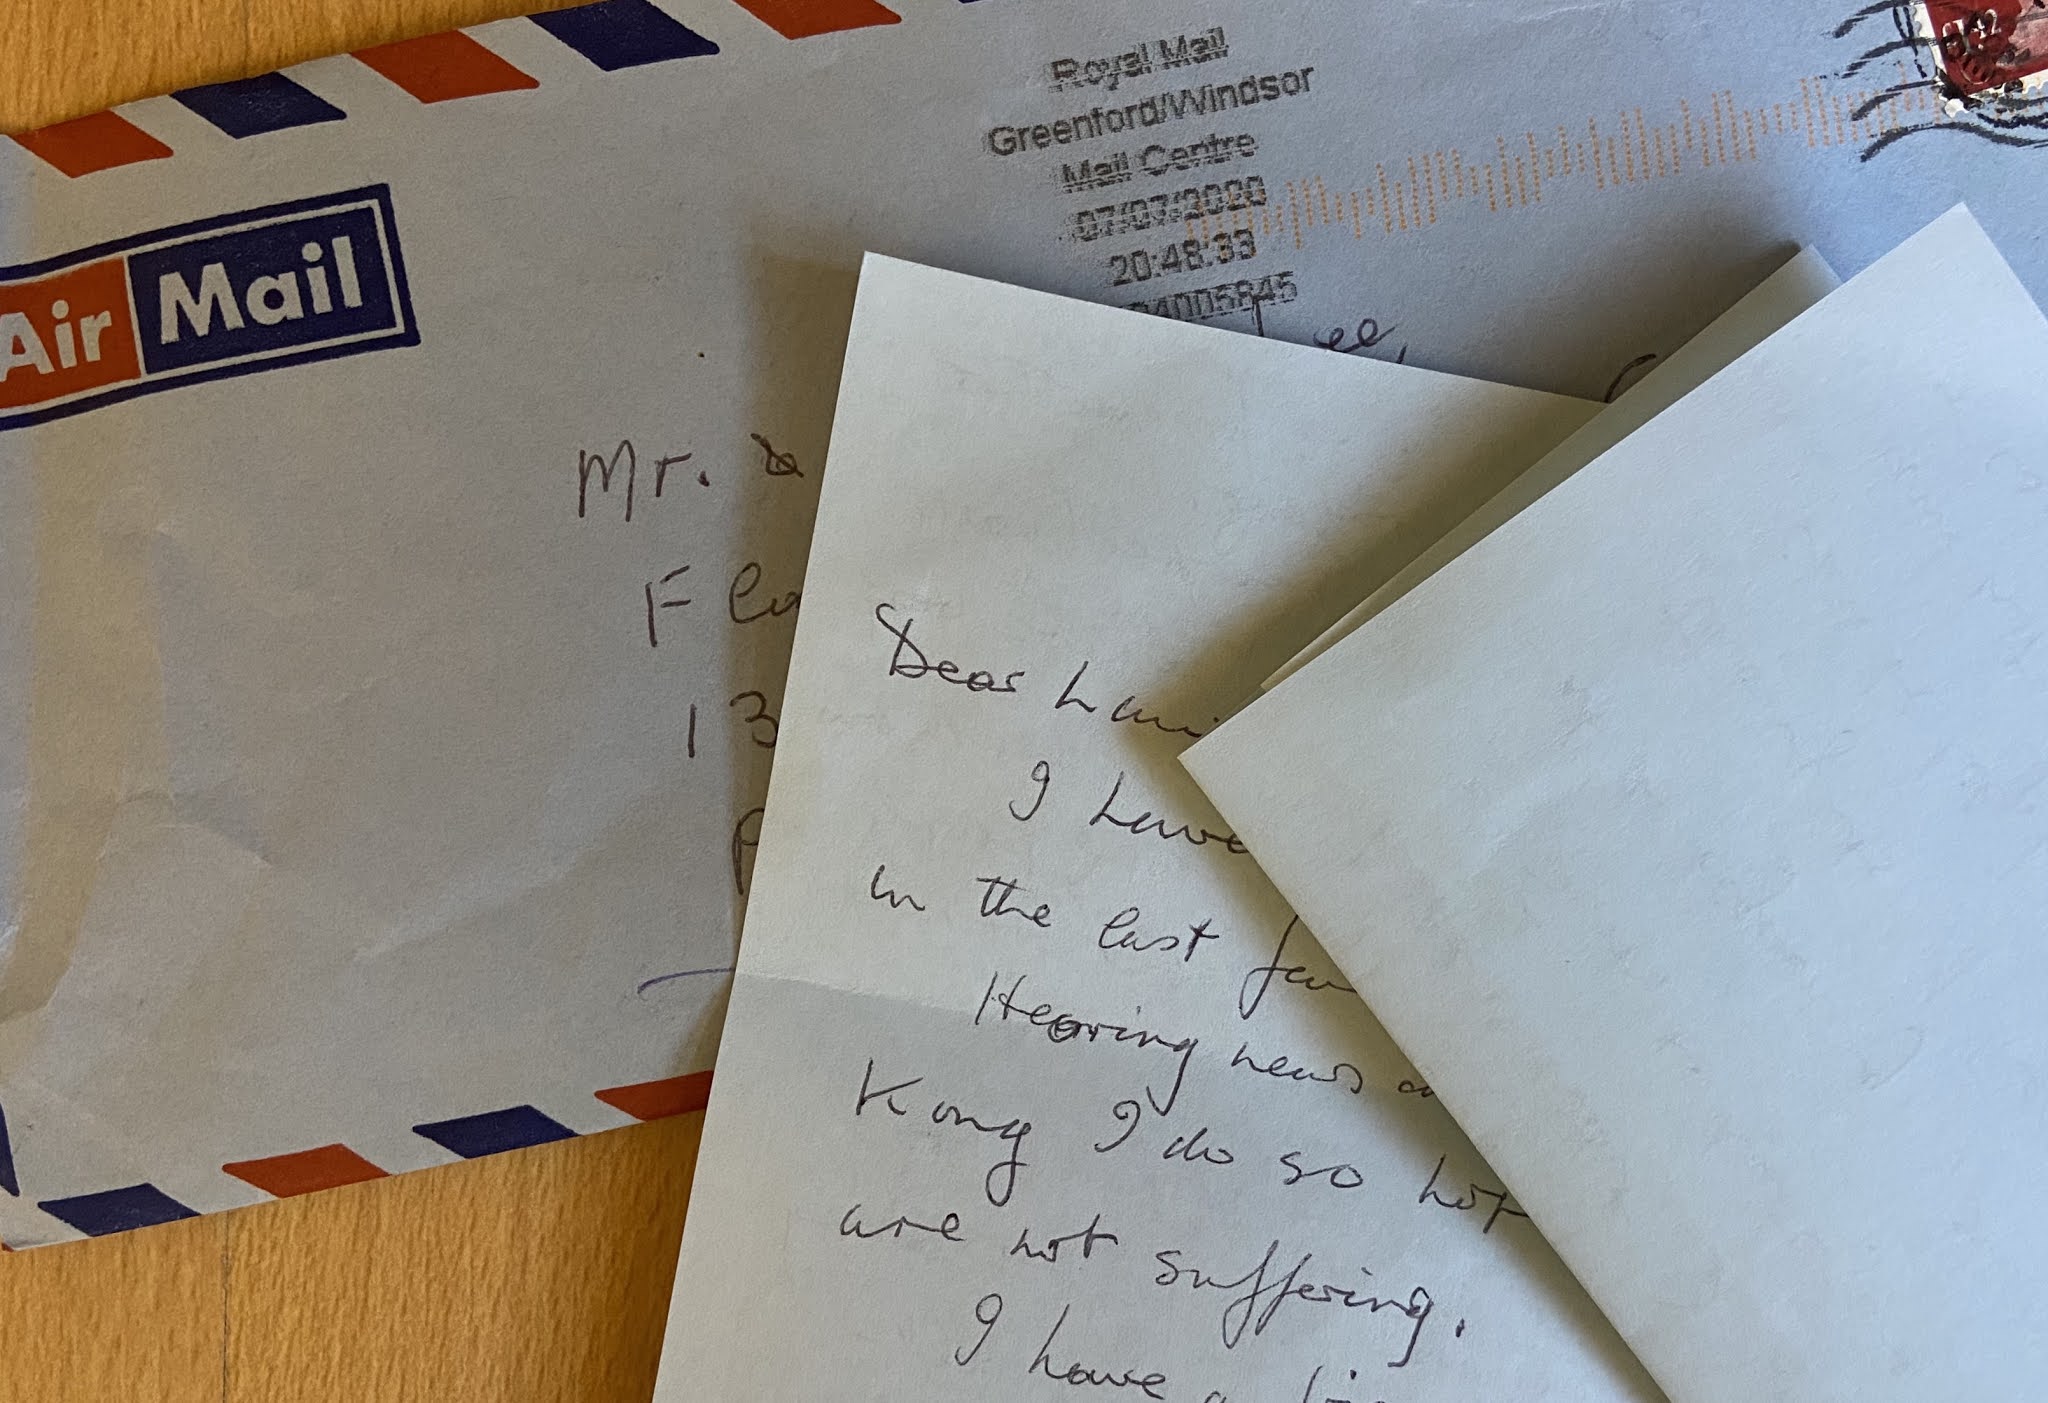 Royal Mail
Greenford/Windsor
Mail Centre
07/07/2020
20:48:33
4005845
Air Mail
ee,
Mr.
F
13
Dear
I have
in the last
Hearing news
Kong I do so
are not suffering.
I have a